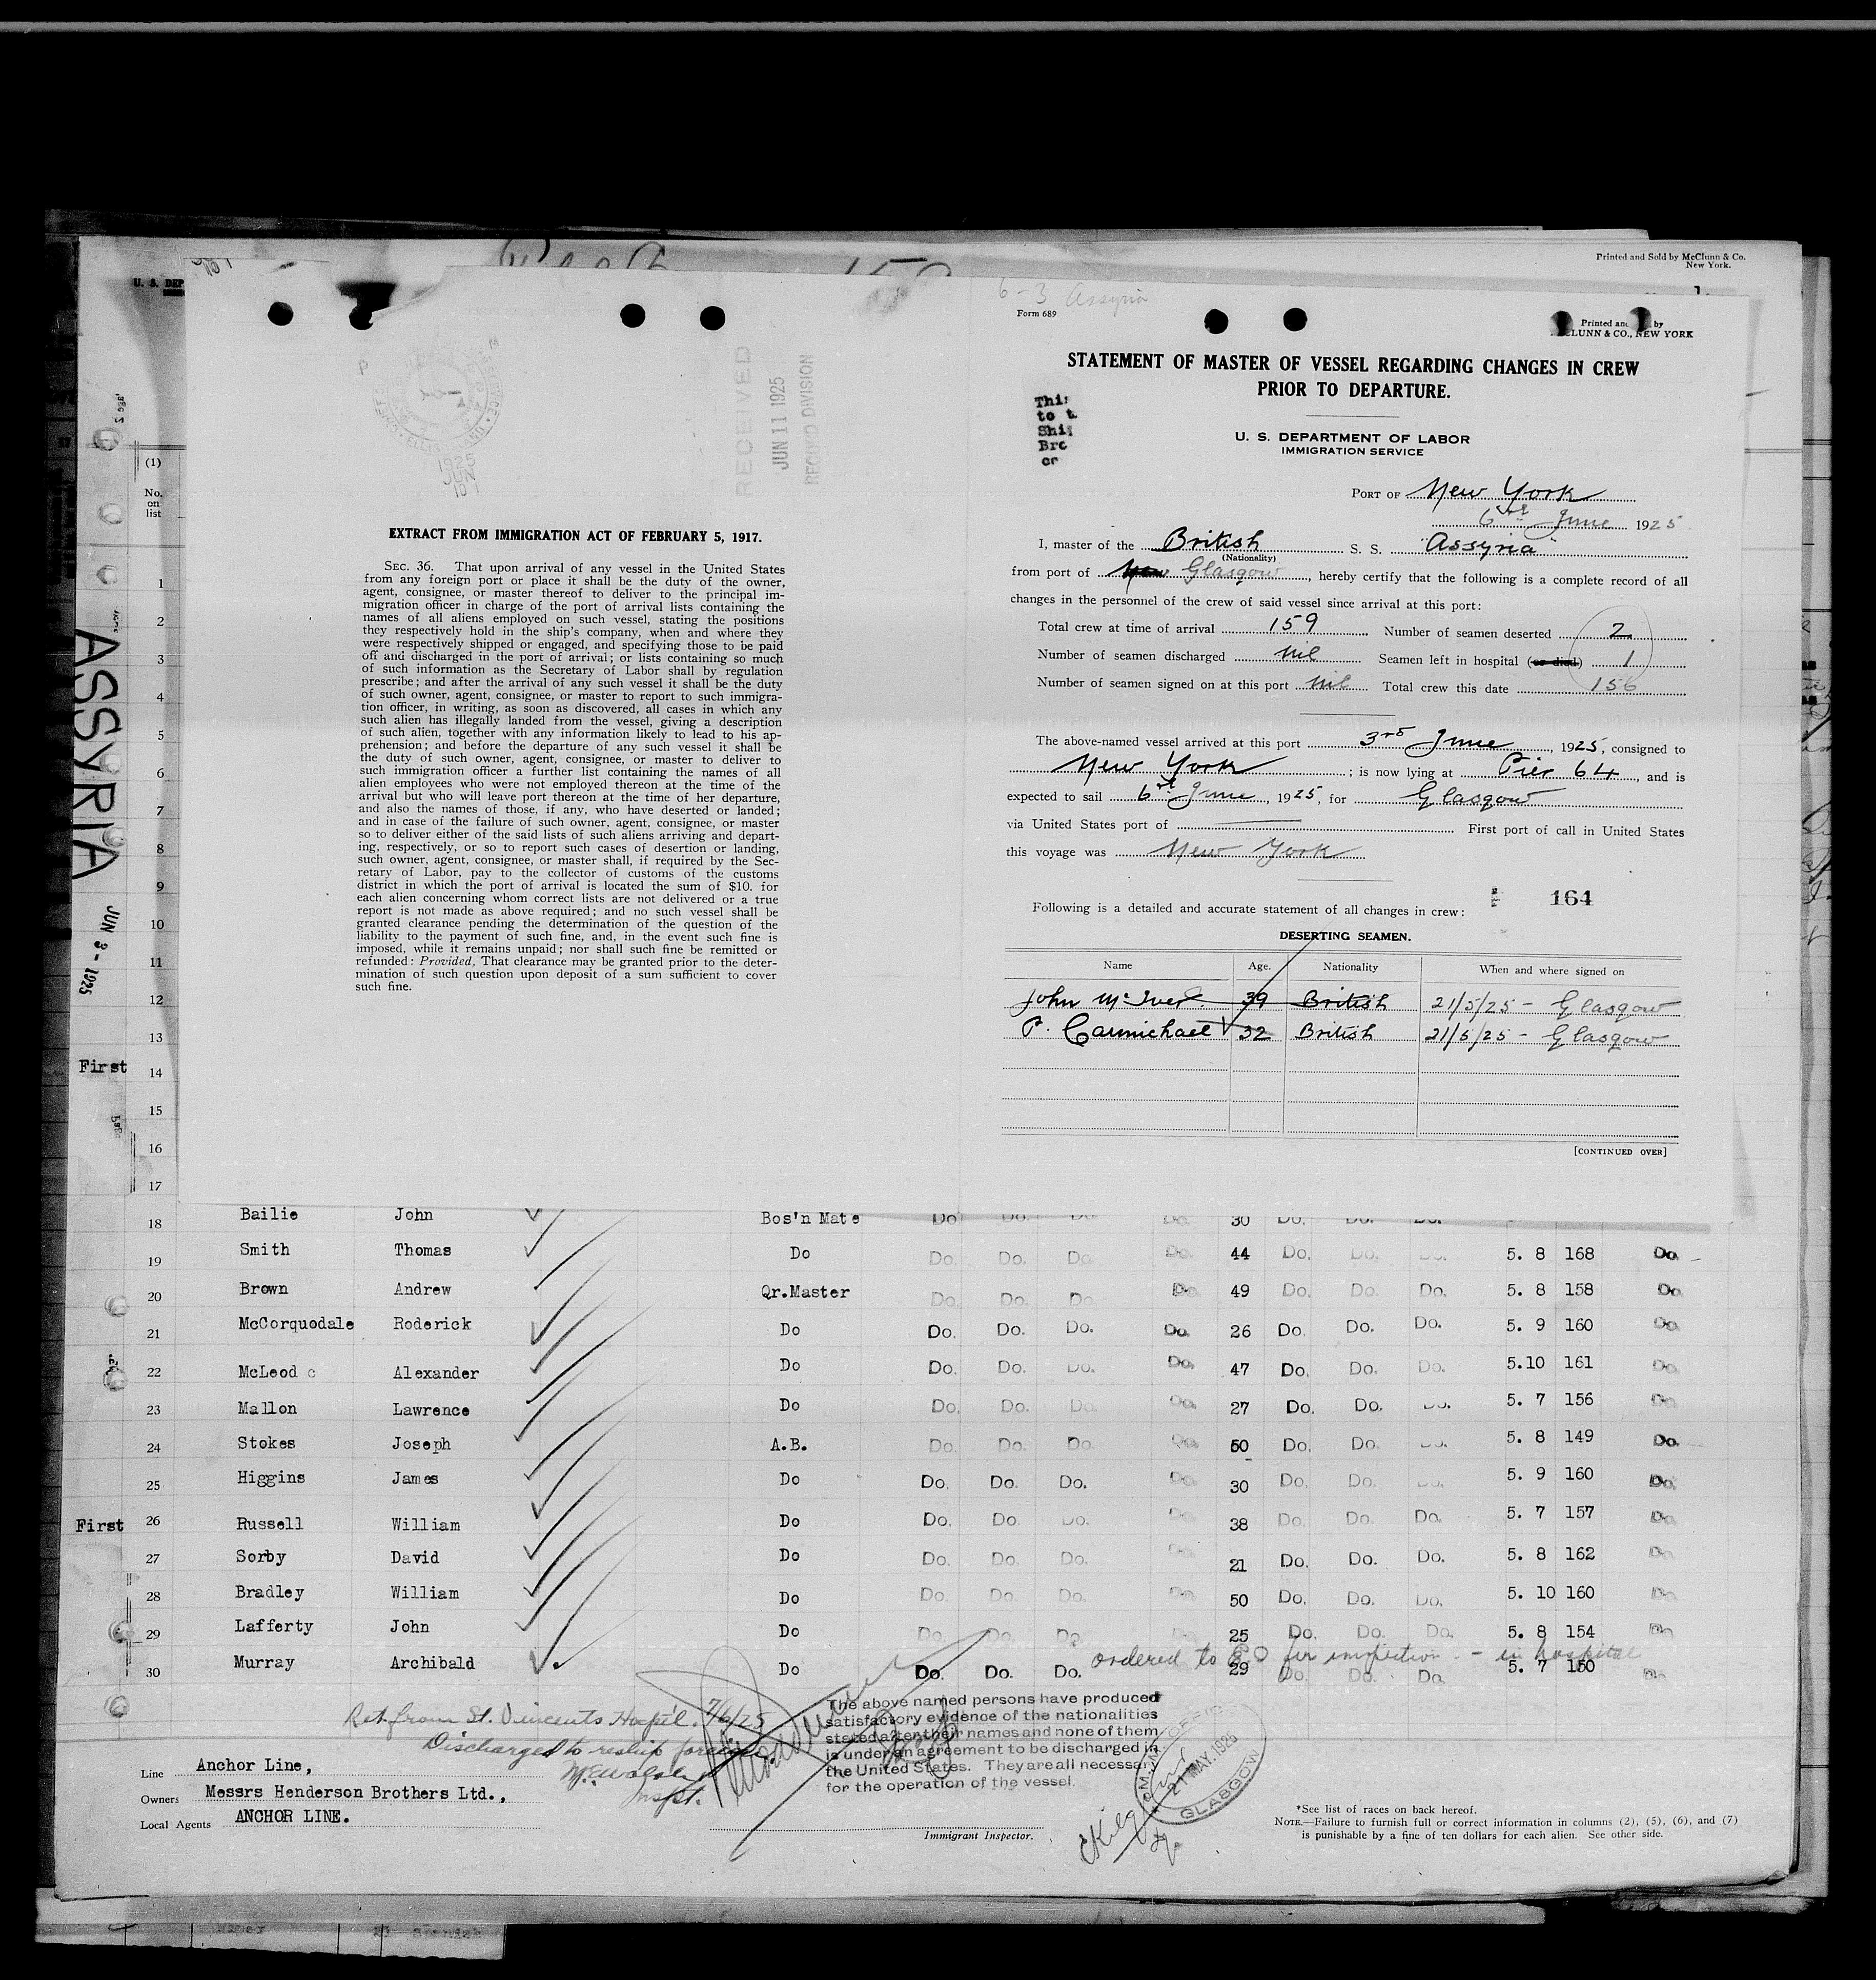 Printed and Sold by McClunn & Co.
New York.
U. S. DEP
6-3 Assyria
Form 689
Printed and by
CLUNN & CO., NEW YORK
STATEMENT OF MASTER OF VESSEL REGARDING CHANGES IN CREW
PRIOR TO DEPARTURE.
U. S. DEPARTMENT OF LABOR
IMMIGRATION SERVICE
PORT OF New York
6th June 1925
I, master of the British S. S. "Assyria"
(Nationality)
from port of New Glasgow, hereby certify that the following is a complete record of all
changes in the personnel of the crew of said vessel since arrival at this port:
Total crew at time of arrival 159 Number of seamen deserted 2
Number of seamen discharged nil Seamen left in hospital (or died) 1
Number of seamen signed on at this port nil Total crew this date 156
The above-named vessel arrived at this port 3rd June, 1925, consigned to
New York; is now lying at Pier 64, and is
expected to sail 6th June, 1925, for Glasgow
via United States port of First port of call in United States
this voyage was New York
164
Following is a detailed and accurate statement of all changes in crew:
DESERTING SEAMEN.
Name Age. Nationality When and where signed on
John McIver 39 British 21/5/25 - Glasgow
P. Carmichael 32 British 21/5/25 - Glasgow
[CONTINUED OVER]
RECEIVED
JUN 11 1925
RECORD DIVISION
1925
JUN
EXTRACT FROM IMMIGRATION ACT OF FEBRUARY 5, 1917.
SEC. 36. That upon arrival of any vessel in the United States
from any foreign port or place it shall be the duty of the owner,
agent, consignee, or master thereof to deliver to the principal im-
migration officer in charge of the port of arrival lists containing the
names of all aliens employed on such vessel, stating the positions
they respectively hold in the ship's company, when and where they
were respectively shipped or engaged, and specifying those to be paid
off and discharged in the port of arrival; or lists containing so much
of such information as the Secretary of Labor shall by regulation
prescribe; and after the arrival of any such vessel it shall be the duty
of such owner, agent, consignee, or master to report to such immigra-
tion officer, in writing, as soon as discovered, all cases in which any
such alien has illegally landed from the vessel, giving a description
of such alien, together with any information likely to lead to his ap-
prehension; and before the departure of any such vessel it shall be
the duty of such owner, agent, consignee, or master to deliver to
such immigration officer a further list containing the names of all
alien employees who were not employed thereon at the time of the
arrival but who will leave port thereon at the time of her departure,
and also the names of those, if any, who have deserted or landed;
and in case of the failure of such owner, agent, consignee, or master
so to deliver either of the said lists of such aliens arriving and depart-
ing, respectively, or so to report such cases of desertion or landing,
such owner, agent, consignee, or master shall, if required by the Sec-
retary of Labor, pay to the collector of customs of the customs
district in which the port of arrival is located the sum of $10. for
each alien concerning whom correct lists are not delivered or a true
report is not made as above required; and no such vessel shall be
granted clearance pending the determination of the question of the
liability to the payment of such fine, and, in the event such fine is
imposed, while it remains unpaid; nor shall such fine be remitted or
refunded: Provided, That clearance may be granted prior to the deter-
mination of such question upon deposit of a sum sufficient to cover
such fine.
ASSYRIA
JUN 3 - 1925
(1)
No.
on
list
1
2
3
4
5
6
7
8
9
10
11
12
13
First
14
15
16
17
18 Bailie John Bos'n Mate Do Do. Do. 30 Do. Do. Do.
19 Smith Thomas Do Do. Do. Do. Do. 44 Do. Do. Do. 5. 8 168 Do.
20 Brown Andrew Qr.Master Do. Do. Do. Do. 49 Do. Do. Do. 5. 8 158 Do.
21 McCorquodale Roderick Do Do. Do. Do. Do. 26 Do. Do. Do. 5. 9 160 Do.
22 McLeod c Alexander Do Do. Do. Do. Do. 47 Do. Do. Do. 5.10 161 Do.
23 Mallon Lawrence Do Do. Do. Do. Do. 27 Do. Do. Do. 5. 7 156 Do.
24 Stokes Joseph A.B. Do. Do. Do. Do. 50 Do. Do. Do. 5. 8 149 Do.
25 Higgins James Do Do. Do. Do. Do. 30 Do. Do. Do. 5. 9 160 Do.
First 26 Russell William Do Do. Do. Do. Do. 38 Do. Do. Do. 5. 7 157 Do.
27 Sorby David Do Do. Do. Do. Do. 21 Do. Do. Do. 5. 8 162 Do.
28 Bradley William Do Do. Do. Do. Do. 50 Do. Do. Do. 5. 10 160 Do.
29 Lafferty John Do Do. Do. Do. Do. 25 Do. Do. Do. 5. 8 154 Do.
ordered to for inspection - in hospital
30 Murray Archibald Do Do. Do. Do. 29 Do. Do. Do. 5. 7 150 Do.
Ret. from St. Vincents Hospl. 7/6/25
Discharged to reship foreign.
Inspt.
The above named persons have produced
satisfactory evidence of the nationalities
stated after their names and none of them
is under an agreement to be discharged in
the United States. They are all necessary
for the operation of the vessel.
M.M. OFFICE
21 MAY. 1925
GLASGOW
Line Anchor Line,
Owners Messrs Henderson Brothers Ltd.,
Local Agents ANCHOR LINE.
Immigrant Inspector.
*See list of races on back hereof.
NOTE.—Failure to furnish full or correct information in columns (2), (5), (6), and (7)
is punishable by a fine of ten dollars for each alien. See other side.